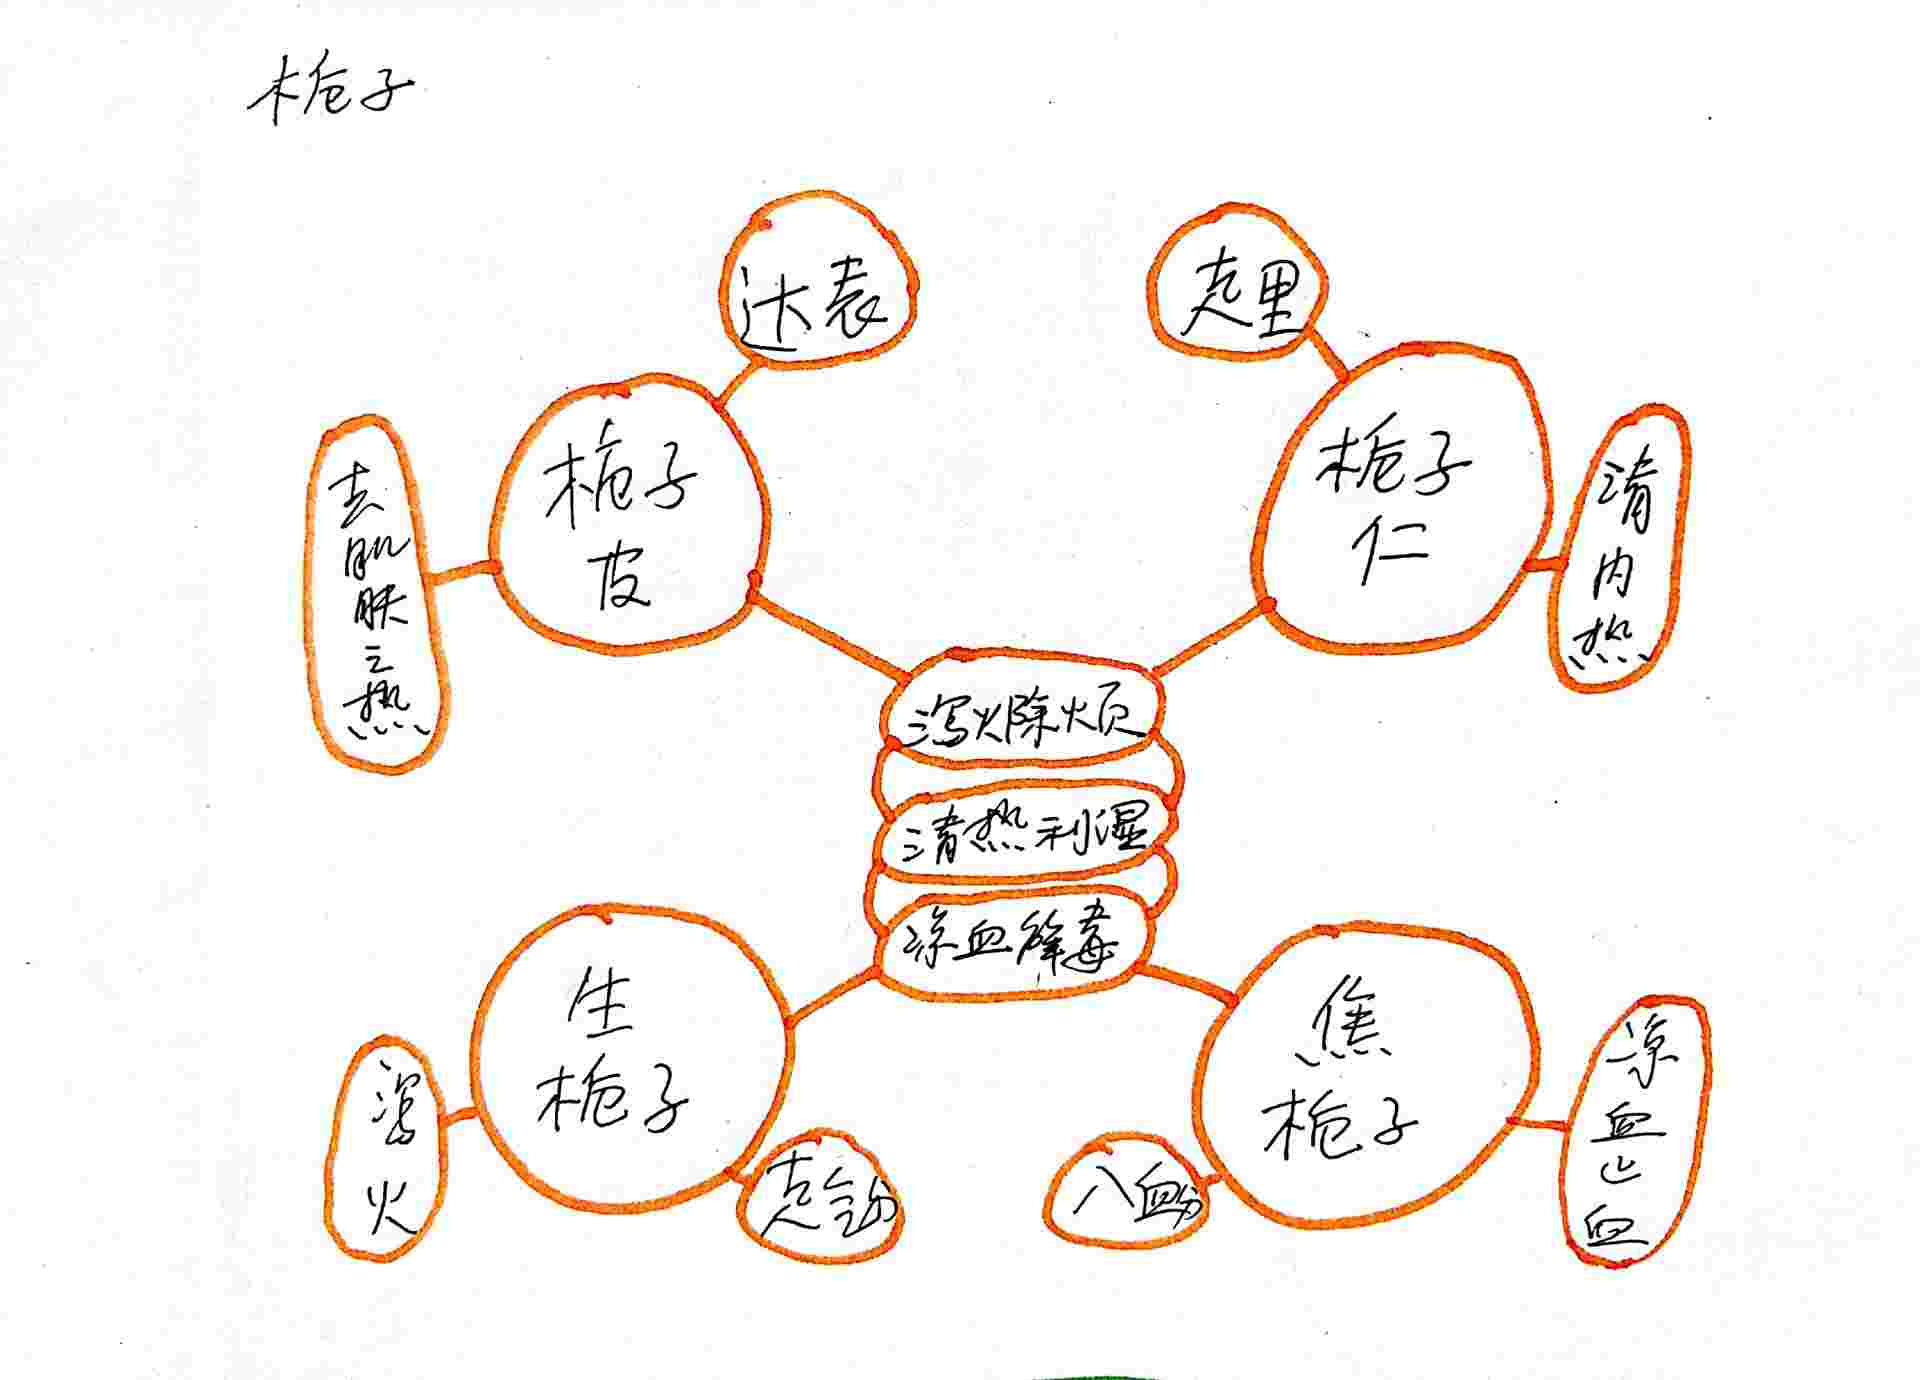 栀子
达表
走里
栀子
皮
栀子
仁
去肌肤之热
清内热
泻火除烦
清热利湿
凉血解毒
生
栀子
焦
栀子
泻火
走气分
入血分
凉血止血